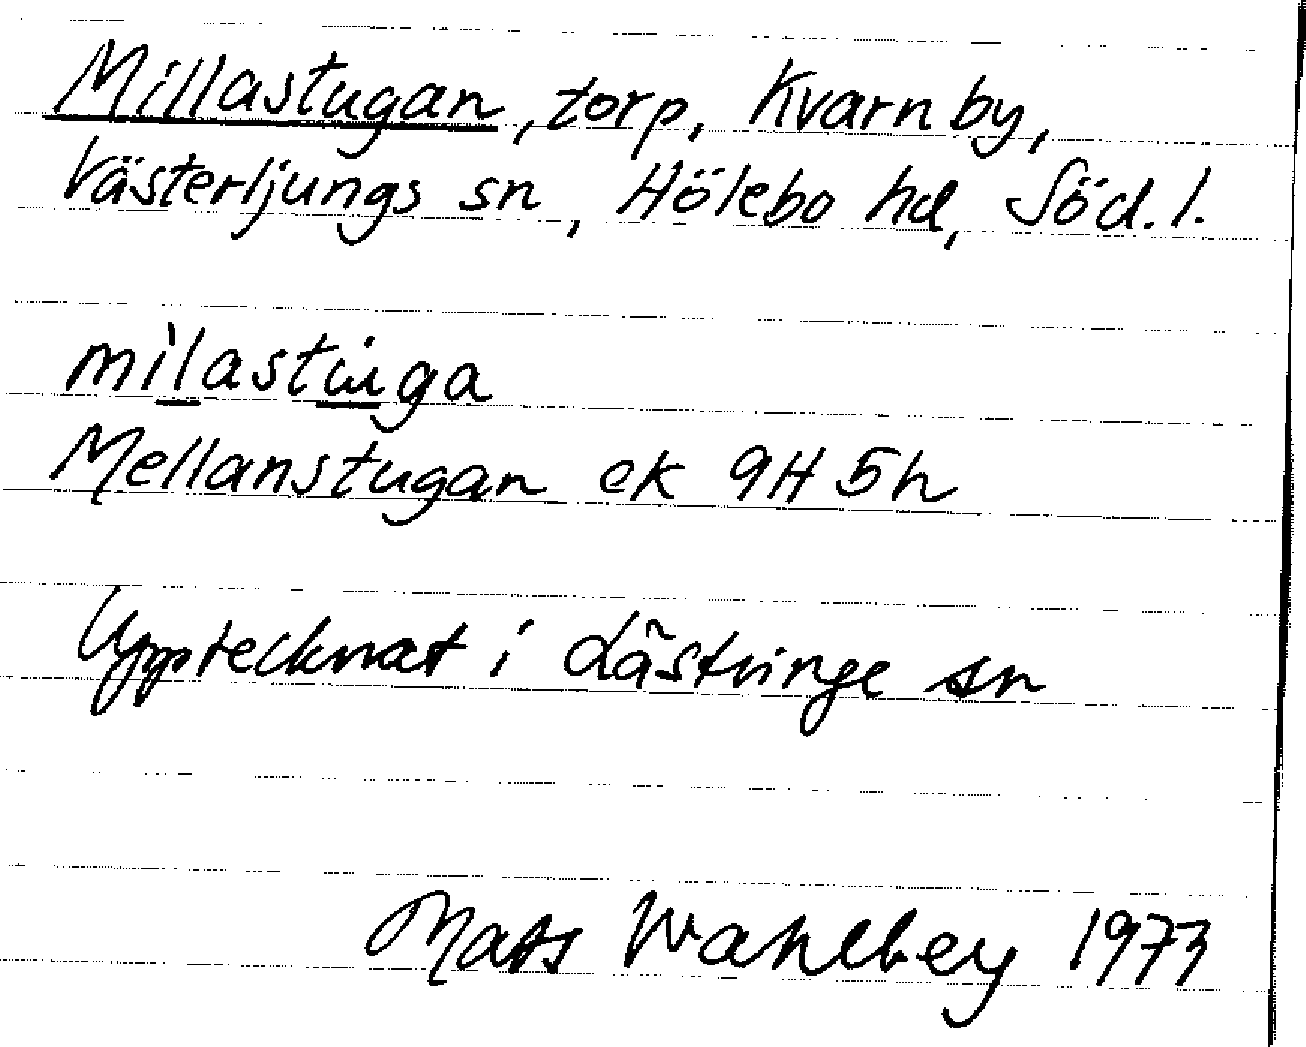 Millastugan, torp, Kvarnby,
Västerljungs sn, Hölebo hd, Söd. l.
mìlastùga
Mellanstugan ek 9H 5h
Upptecknat i Lästringe sn
Mats Wahlberg 1973